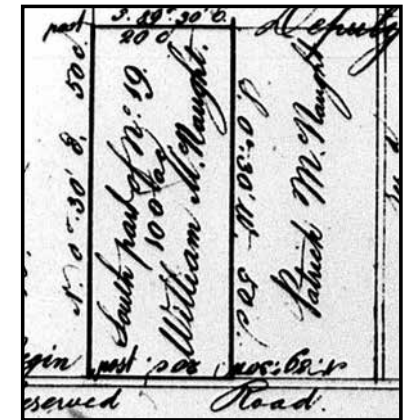 post S. 89° 30' E. Deputy
20 c
N. 0° 30' E. 50 c.
South part of No. 19.
100 ac
William McNaught.
S. 0° 30' W. 50 c.
Patrick McNaught
post 20 c N. 89° 30' W
eserved Road.